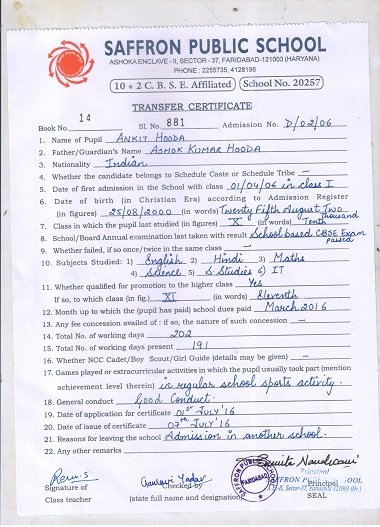 SAFFRON PUBLIC SCHOOL
ASHOKA ENCLAVE - II, SECTOR - 37, FARIDABAD-121003 (HARYANA)
PHONE : 2255735, 4128195
10 + 2 C. B. S. E. Affiliated School No. 20257
TRANSFER CERTIFICATE
Book No. 14 Sl. No. 881 Admission No. D/02/06
1. Name of Pupil ANKIT HOODA
2. Father/Guardian's Name ASHOK KUMAR HOODA
3. Nationality Indian
4. Whether the candidate belongs to Schedule Caste or Schedule Tribe —
5. Date of first admission in the School with class 01/04/06 in class I
6. Date of birth (in Christian Era) according to Admission Register
(in figures) 25/08/2000 (in words) Twenty Fifth August Two thousand
7. Class in which the pupil last studied (in figures) X (in words) Tenth
8. School/Board Annual examination last taken with result School based CBSE Exam passed
9. Whether failed, if so once/twice in the same class —
10. Subjects Studied: 1) English 2) Hindi 3) Maths
4) Science 5) S. Studies 6) IT
11. Whether qualified for promotion to the higher class Yes
If so, to which class (in fig.) XI (in words) Eleventh
12. Month up to the (pupil has paid) school dues paid March 2016
13. Any fee concession availed of : if so, the nature of such concession —
14. Total No. of working days 202
15. Total No. of working days present 191
16. Whether NCC Cadet/Boy Scout/Girl Guide (details may be given) —
17. Games played or extracurricular activities in which the pupil usually took part (mention
achievement level therein) in regular school sports activity.
18. General conduct Good Conduct.
19. Date of application for certificate 01st JULY'16
20. Date of issue of certificate 07th JULY'16
21. Reasons for leaving the school Admission in another school.
22. Any other remarks
Signature of
Class teacher
Checked by
(state full name and designation)
SAFFRON PUBLIC SCHOOL
FARIDABAD
Principal
SAFFRON PUBLIC SCHOOL
Principal
Sector-37, Faridabad 121003 (Hr.)
SEAL